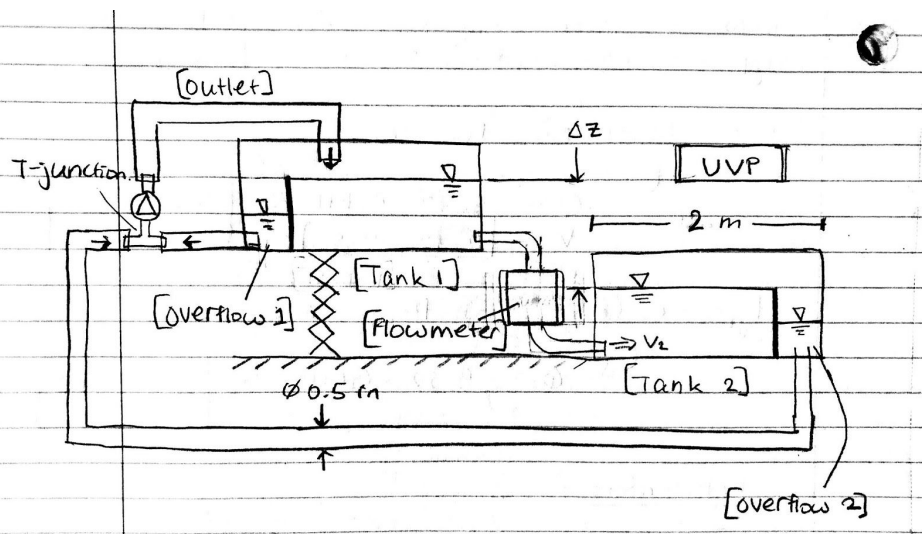 [outlet]
ΔZ
UVP
T-junction
2 m
[Tank 1]
[overflow 1]
[Flowmeter]
V₂
[Tank 2]
Ø 0.5 m
[overflow 2]